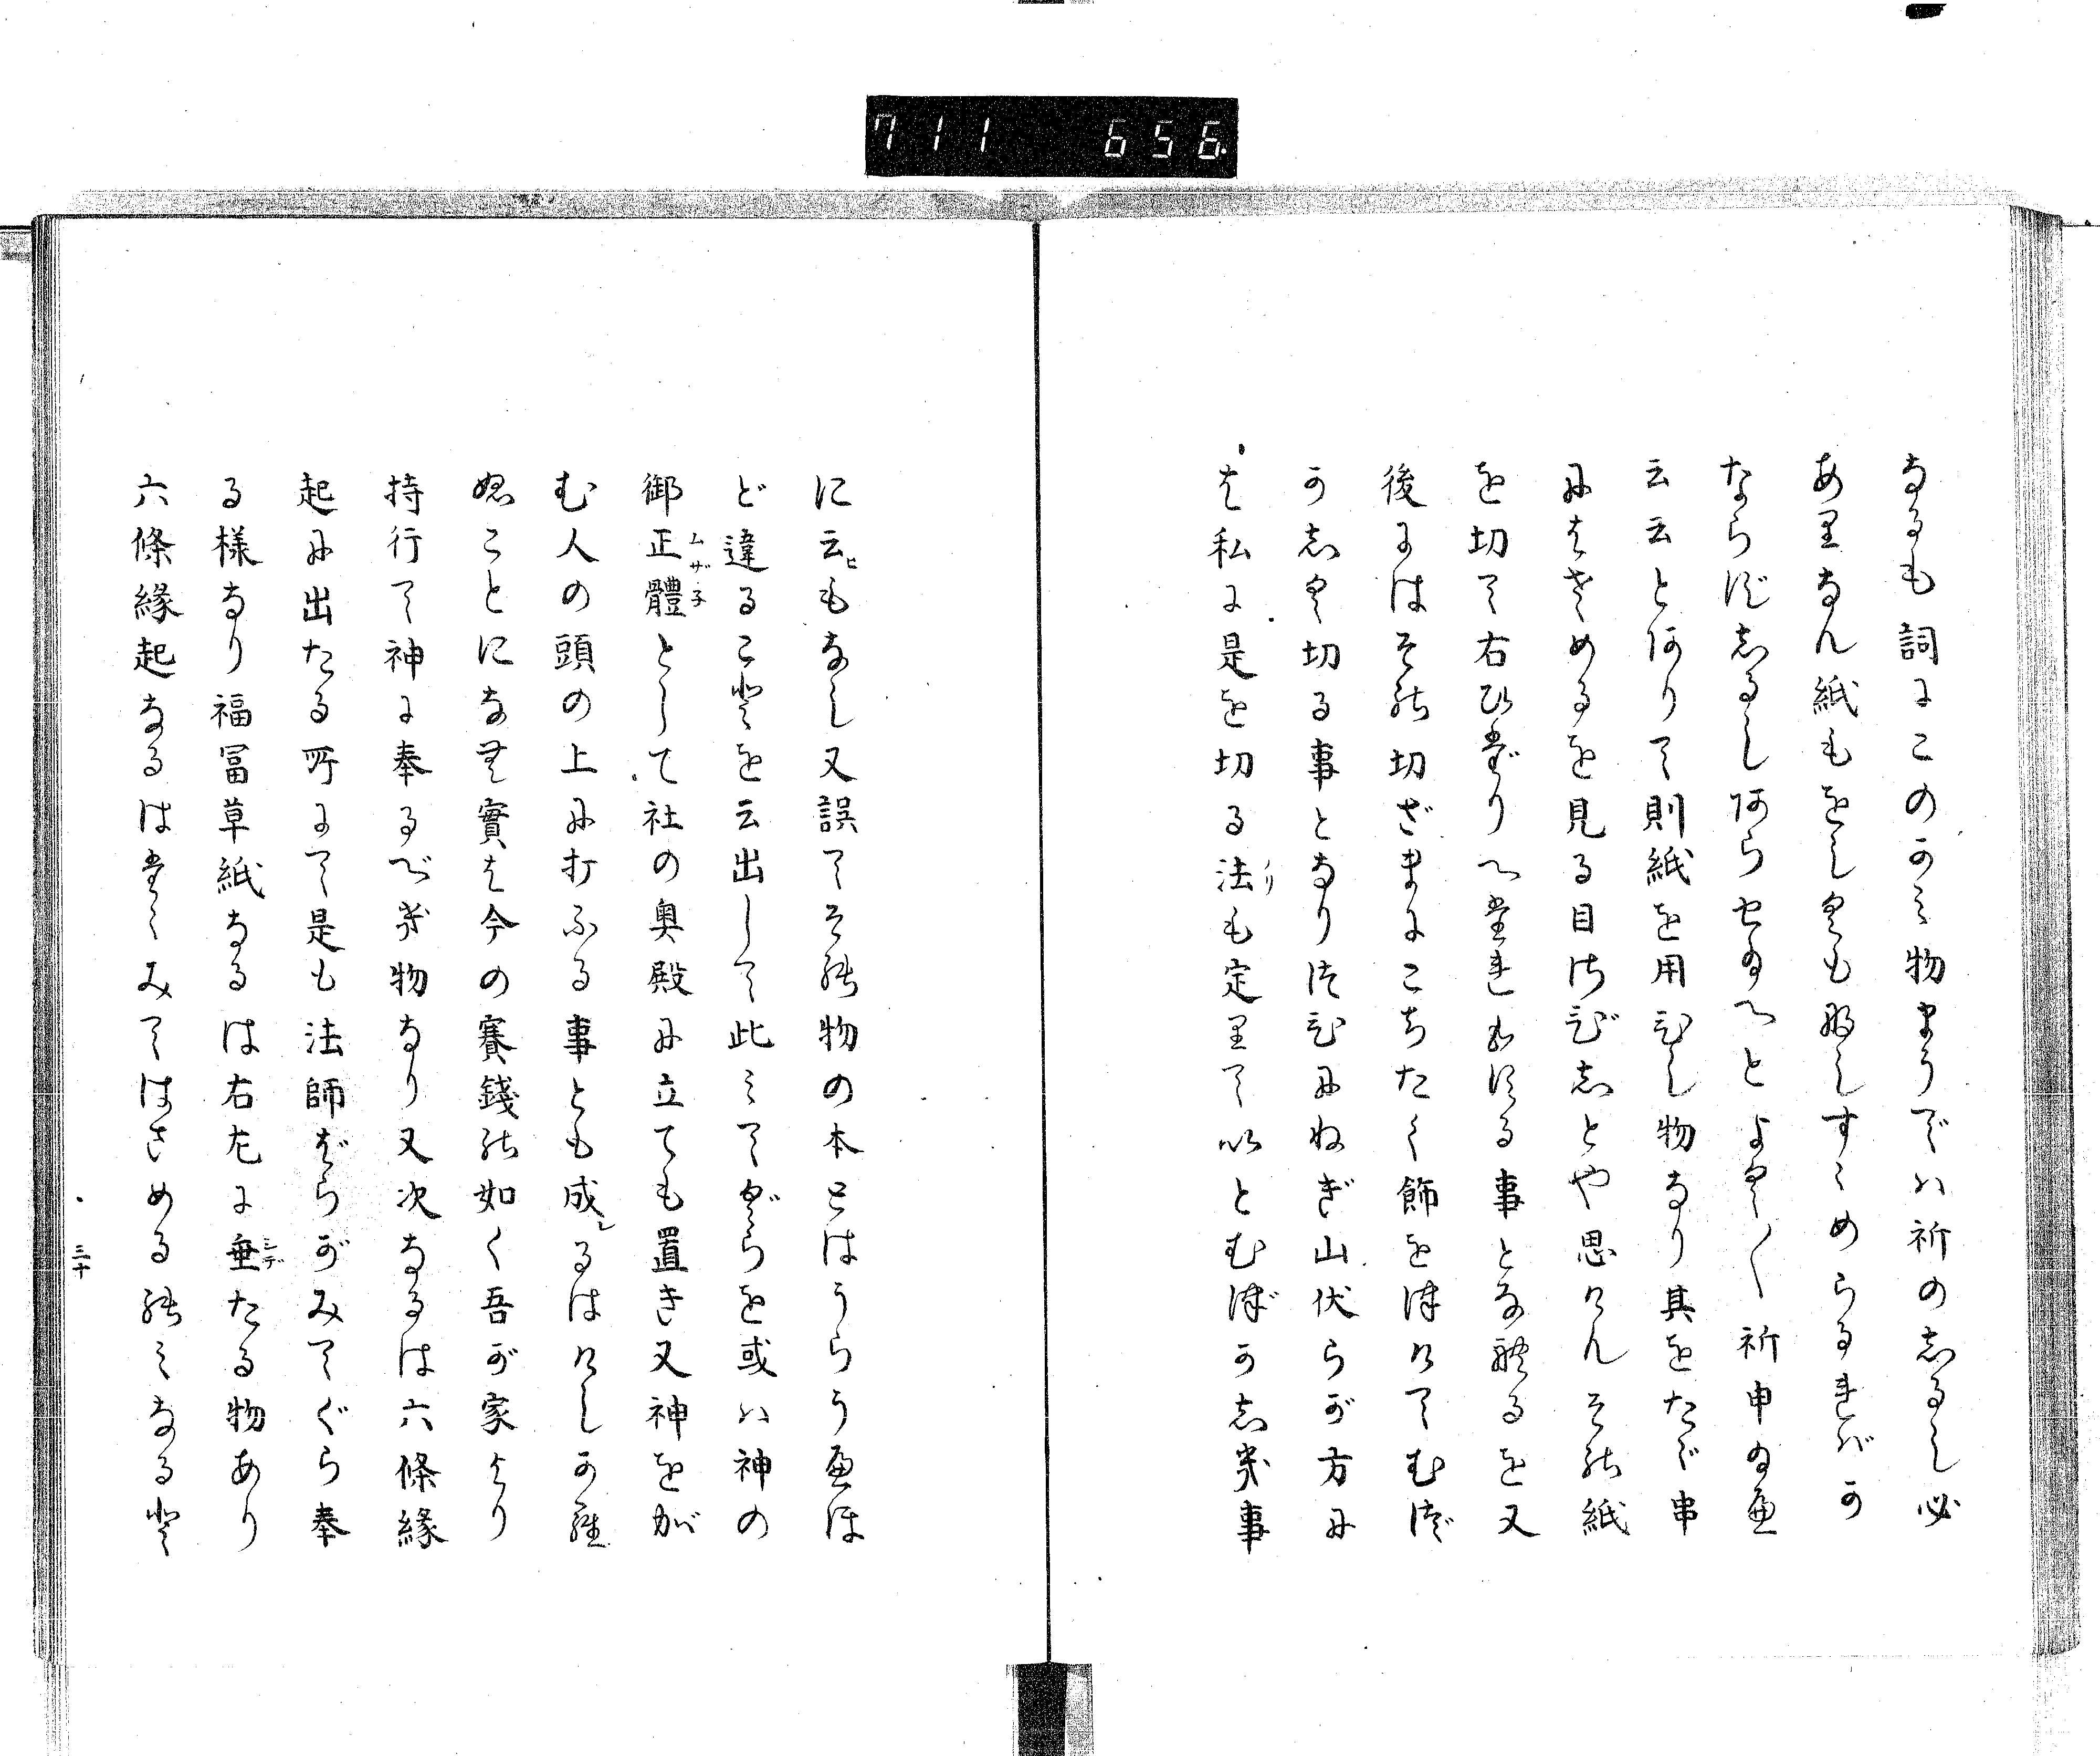 711 656
なるも詞にこのかみ物まうでハ祈のしるし必
あり なん紙もをしくも形しすゝめらるれバか
ならずしるしあらせ給へとよく〳〵祈申給へ
云云とありて則紙を用ひし物なり其をたゞ串
にはさめるを見る目さびしとや思けんその紙
を切て右ひだりへたれかくる事となれるを又
後にはその切ざまにこちたく飾をつけてむづ
かしく切る事となりつひにねぎ山伏らが方に
は私に是を切る法ノリも定りていとむづかしき事
に云ヒもなし又誤てその物の本とはうらうへほ
ど違ることを云出して此みてぐらを或ハ神の
御正體ムザネとして社の奥殿に立ても置き又神をが
む人の頭の上に打ふる事とも成レるはけしから
ぬことになむ實は今の賽錢の如く吾が家より
持行て神に奉るべき物なり又次なるは六條緣
起に出たる所にて是も法師ばらがみてぐら奉
る様なり福冨草紙なるは右左に垂シデたる物あり
六條緣起なるはたゝみてはさめるのみなると
三十